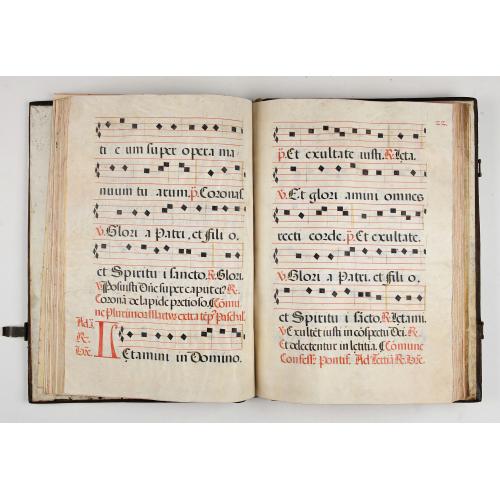 ti e um super opera ma
nuum tu arum. p. Coronas
V. Glori a Patri, et fili o,
et Spiritu i sancto. R. Glori.
V. Posuisti Dñe super caput ei? R.
Corona de lapide pretioso. Comu
ne Plurimor. Mart
Ad
R.
Lętamini in Domino.
22.
p. Et exultate iusti. R. Lęta.
V. Et glori amini omnes
recti corde. p. Et exultate.
V. Glori a Patri, et fili o,
et Spiritu i sācto. R. Lętami
V. Exultēt iusti in cōspectu Dei. R.
Et delectentur in lętitia. Comune
Confess. Pontif.